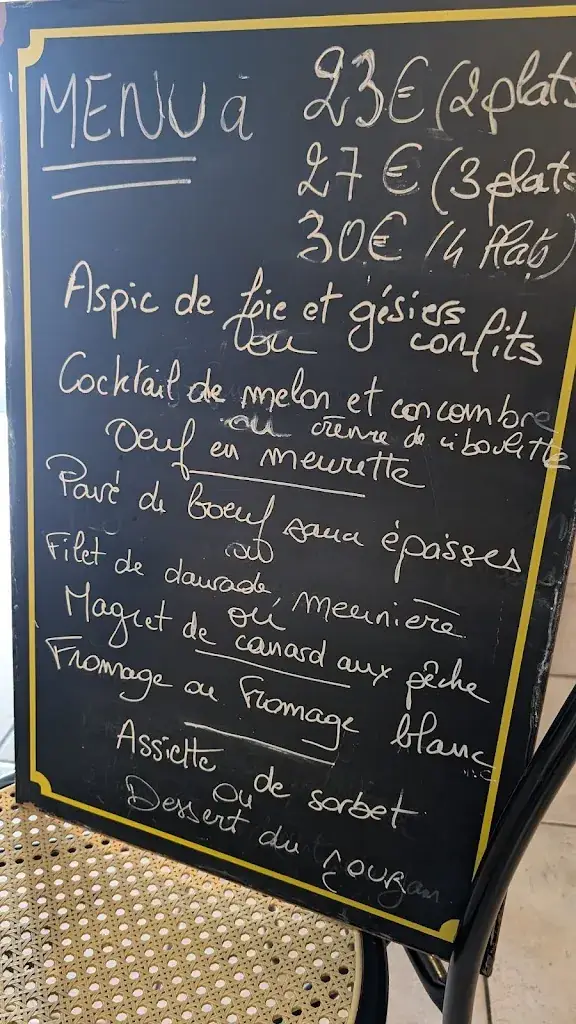 MENU à 23€ (2 plats
27 € (3 plats
30€ (4 Plats)
Aspic de foie et gésiers confits
ou
Cocktail de melon et concombre
ou crème de ciboulette
Oeuf en meurette
Pavé de boeuf sauce épasses
ou
Filet de daurade, meunière
ou
Magret de canard aux pêche
Fromage ou Fromage blanc
Assiette de sorbet
ou
Dessert du